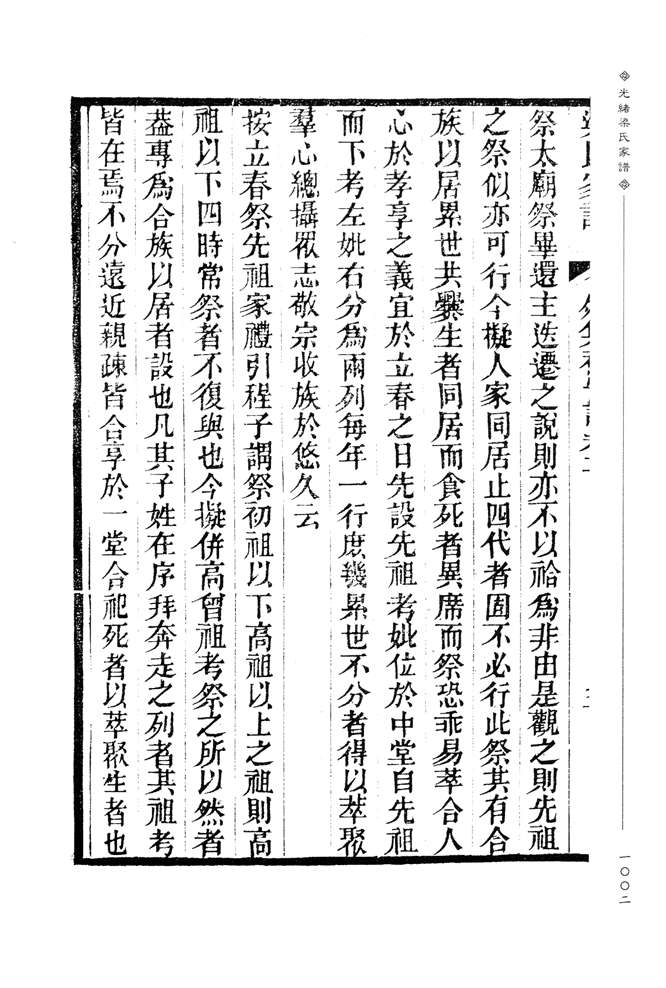 光緒梁氏家譜
一〇〇二
祭太廟祭畢還主迭遷之說則亦不以祫為非由是觀之則先祖
之祭似亦可行今擬人家同居止四代者固不必行此祭其有合
族以居累世共爨生者同居而食死者異席而祭恐乖易萃合人
心於孝享之義宜於立春之日先設先祖考妣位於中堂自先祖
而下考左妣右分為兩列每年一行庶幾累世不分者得以萃聚
羣心總攝眾志敬宗收族於悠久云
按立春祭先祖家禮引程子謂祭初祖以下高祖以上之祖則高
祖以下四時常祭者不復與也今擬併高曾祖考祭之所以然者
葢專為合族以居者設也凡其子姓在序拜奔走之列者其祖考
皆在焉不分遠近親疎皆合享於一堂合祀死者以萃聚生者也